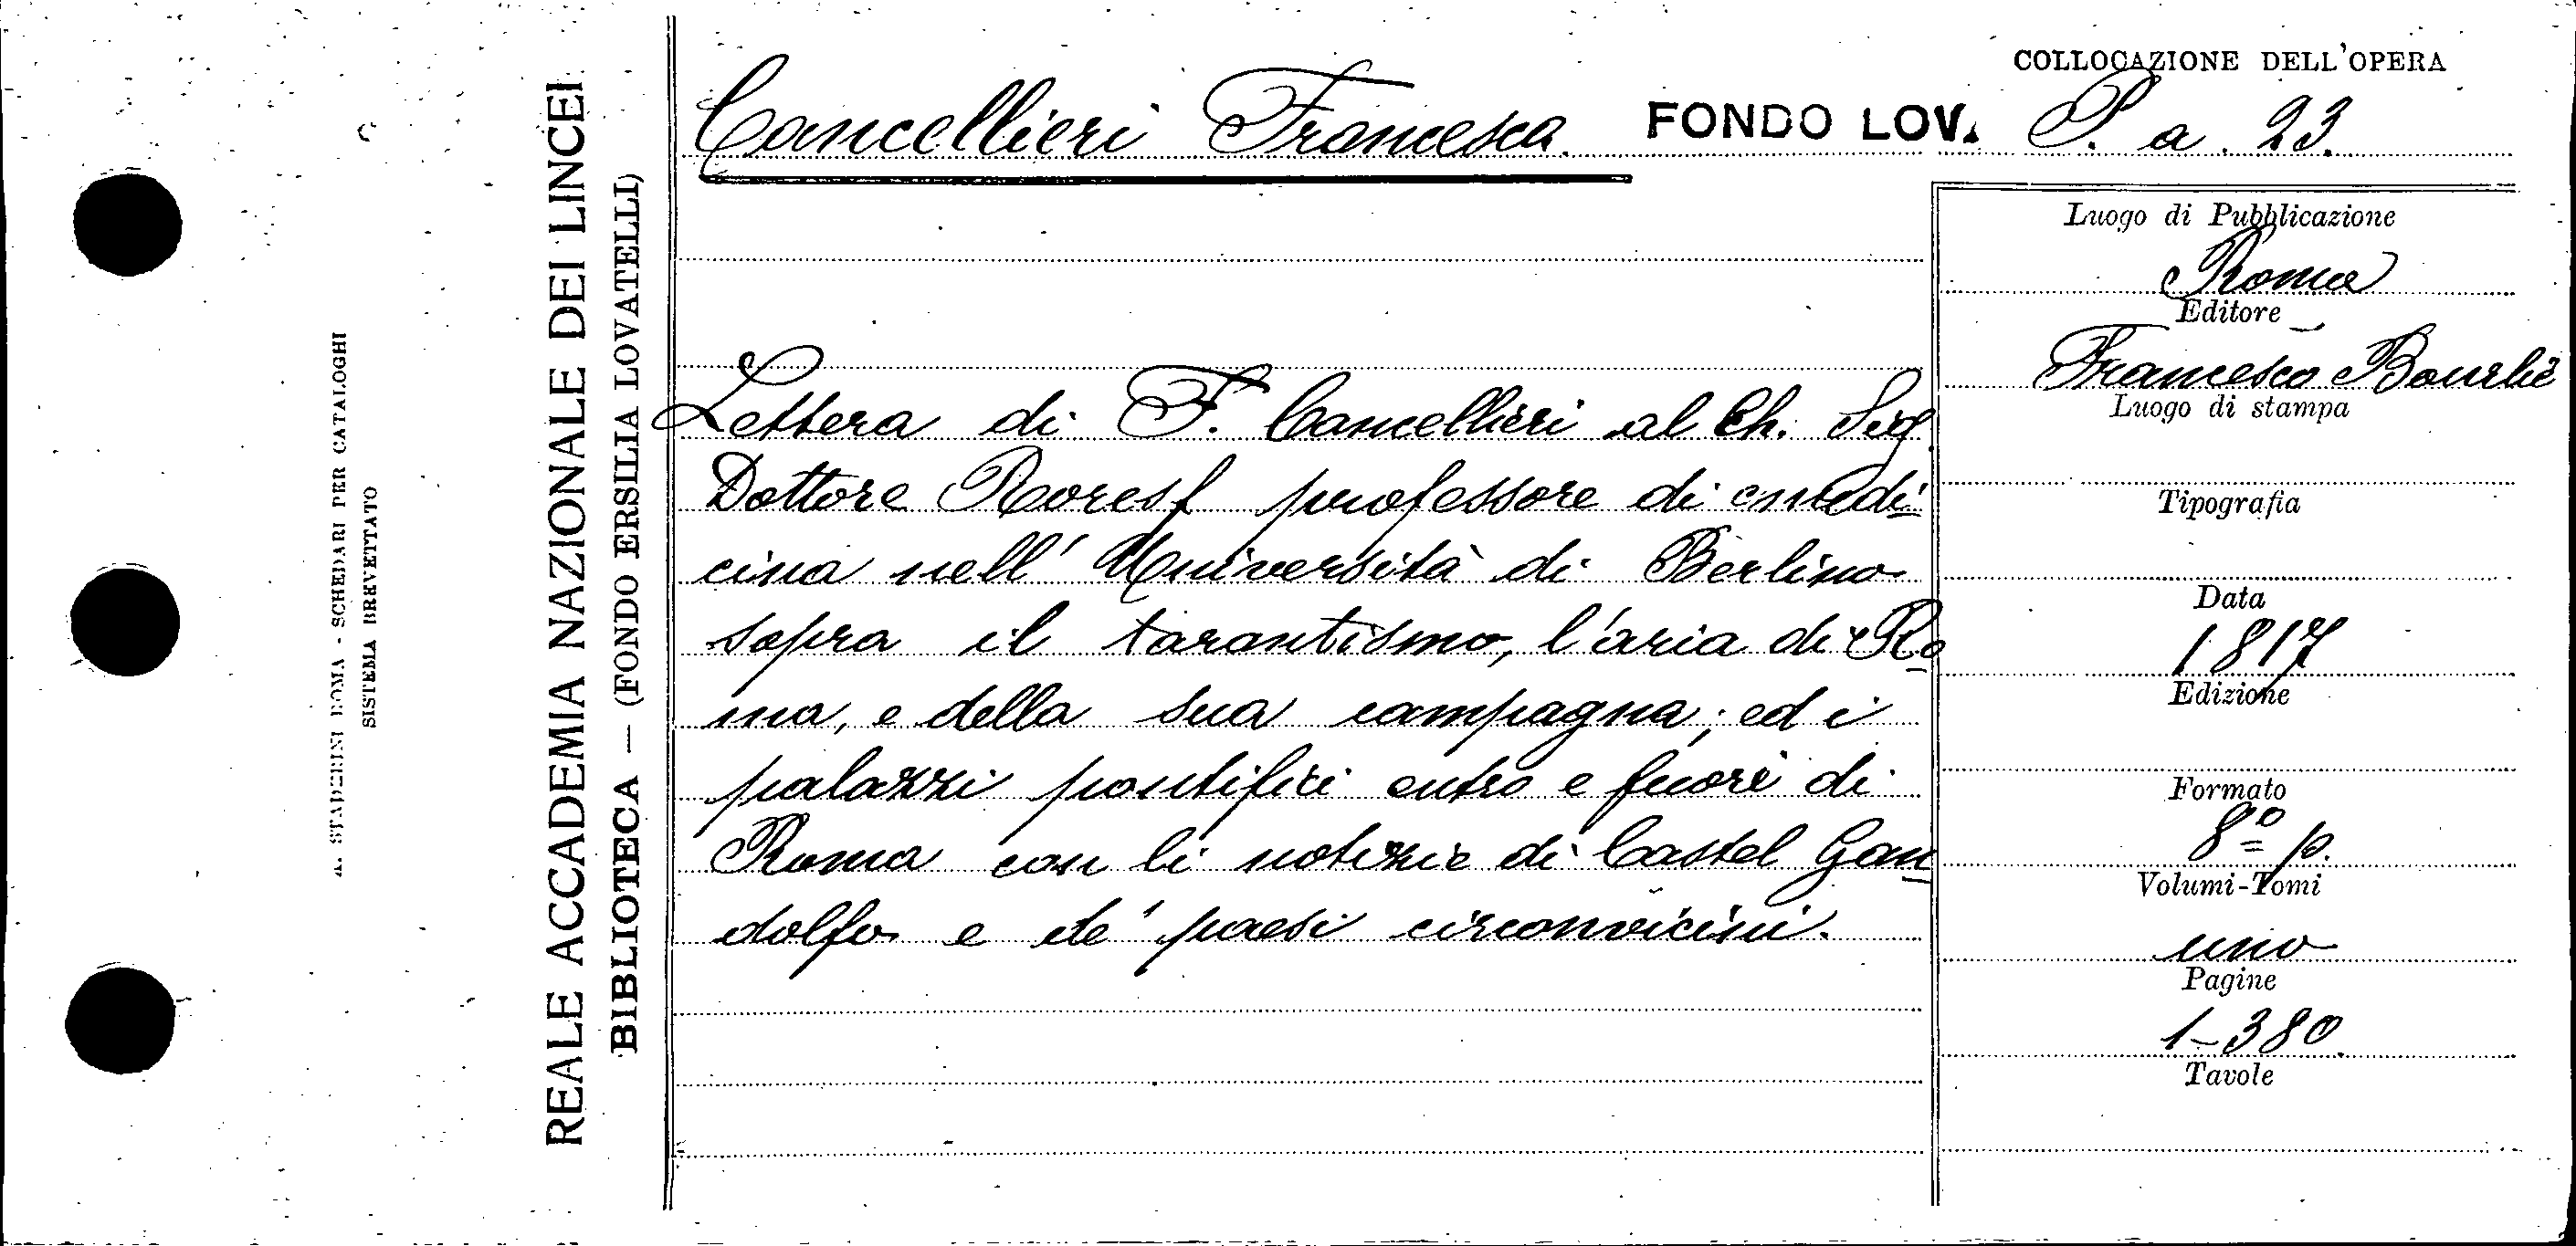 COLLOCAZIONE DELL'OPERA
Cancellieri Francesca. FONDO LOV. P. a. 23.
REALE ACCADEMIA NAZIONALE DEI LINCEI
BIBLIOTECA — (FONDO ERSILIA LOVATELLI)
A. STADERINI ROMA - SCHEDARI PER CATALOGHI
SISTEMA BREVETTATO
Lettera di F. Cancellieri al Ch. Sig.
Dottore Koref professore di medi=
cina nell' Università di Berlino
sopra il tarantismo, l'aria di Ro
ma, e della sua campagna; ed i
palazzi pontifici entro e fuori di
Roma con li notizie di Castel Gan
dolfo e de' paesi circonvicini.
Luogo di Pubblicazione
Roma
Editore
Francesco Bourlié
Luogo di stampa
Tipografia
Data
1817
Edizione
Formato
8º p.
Volumi-Tomi
uno
Pagine
1-380.
Tavole